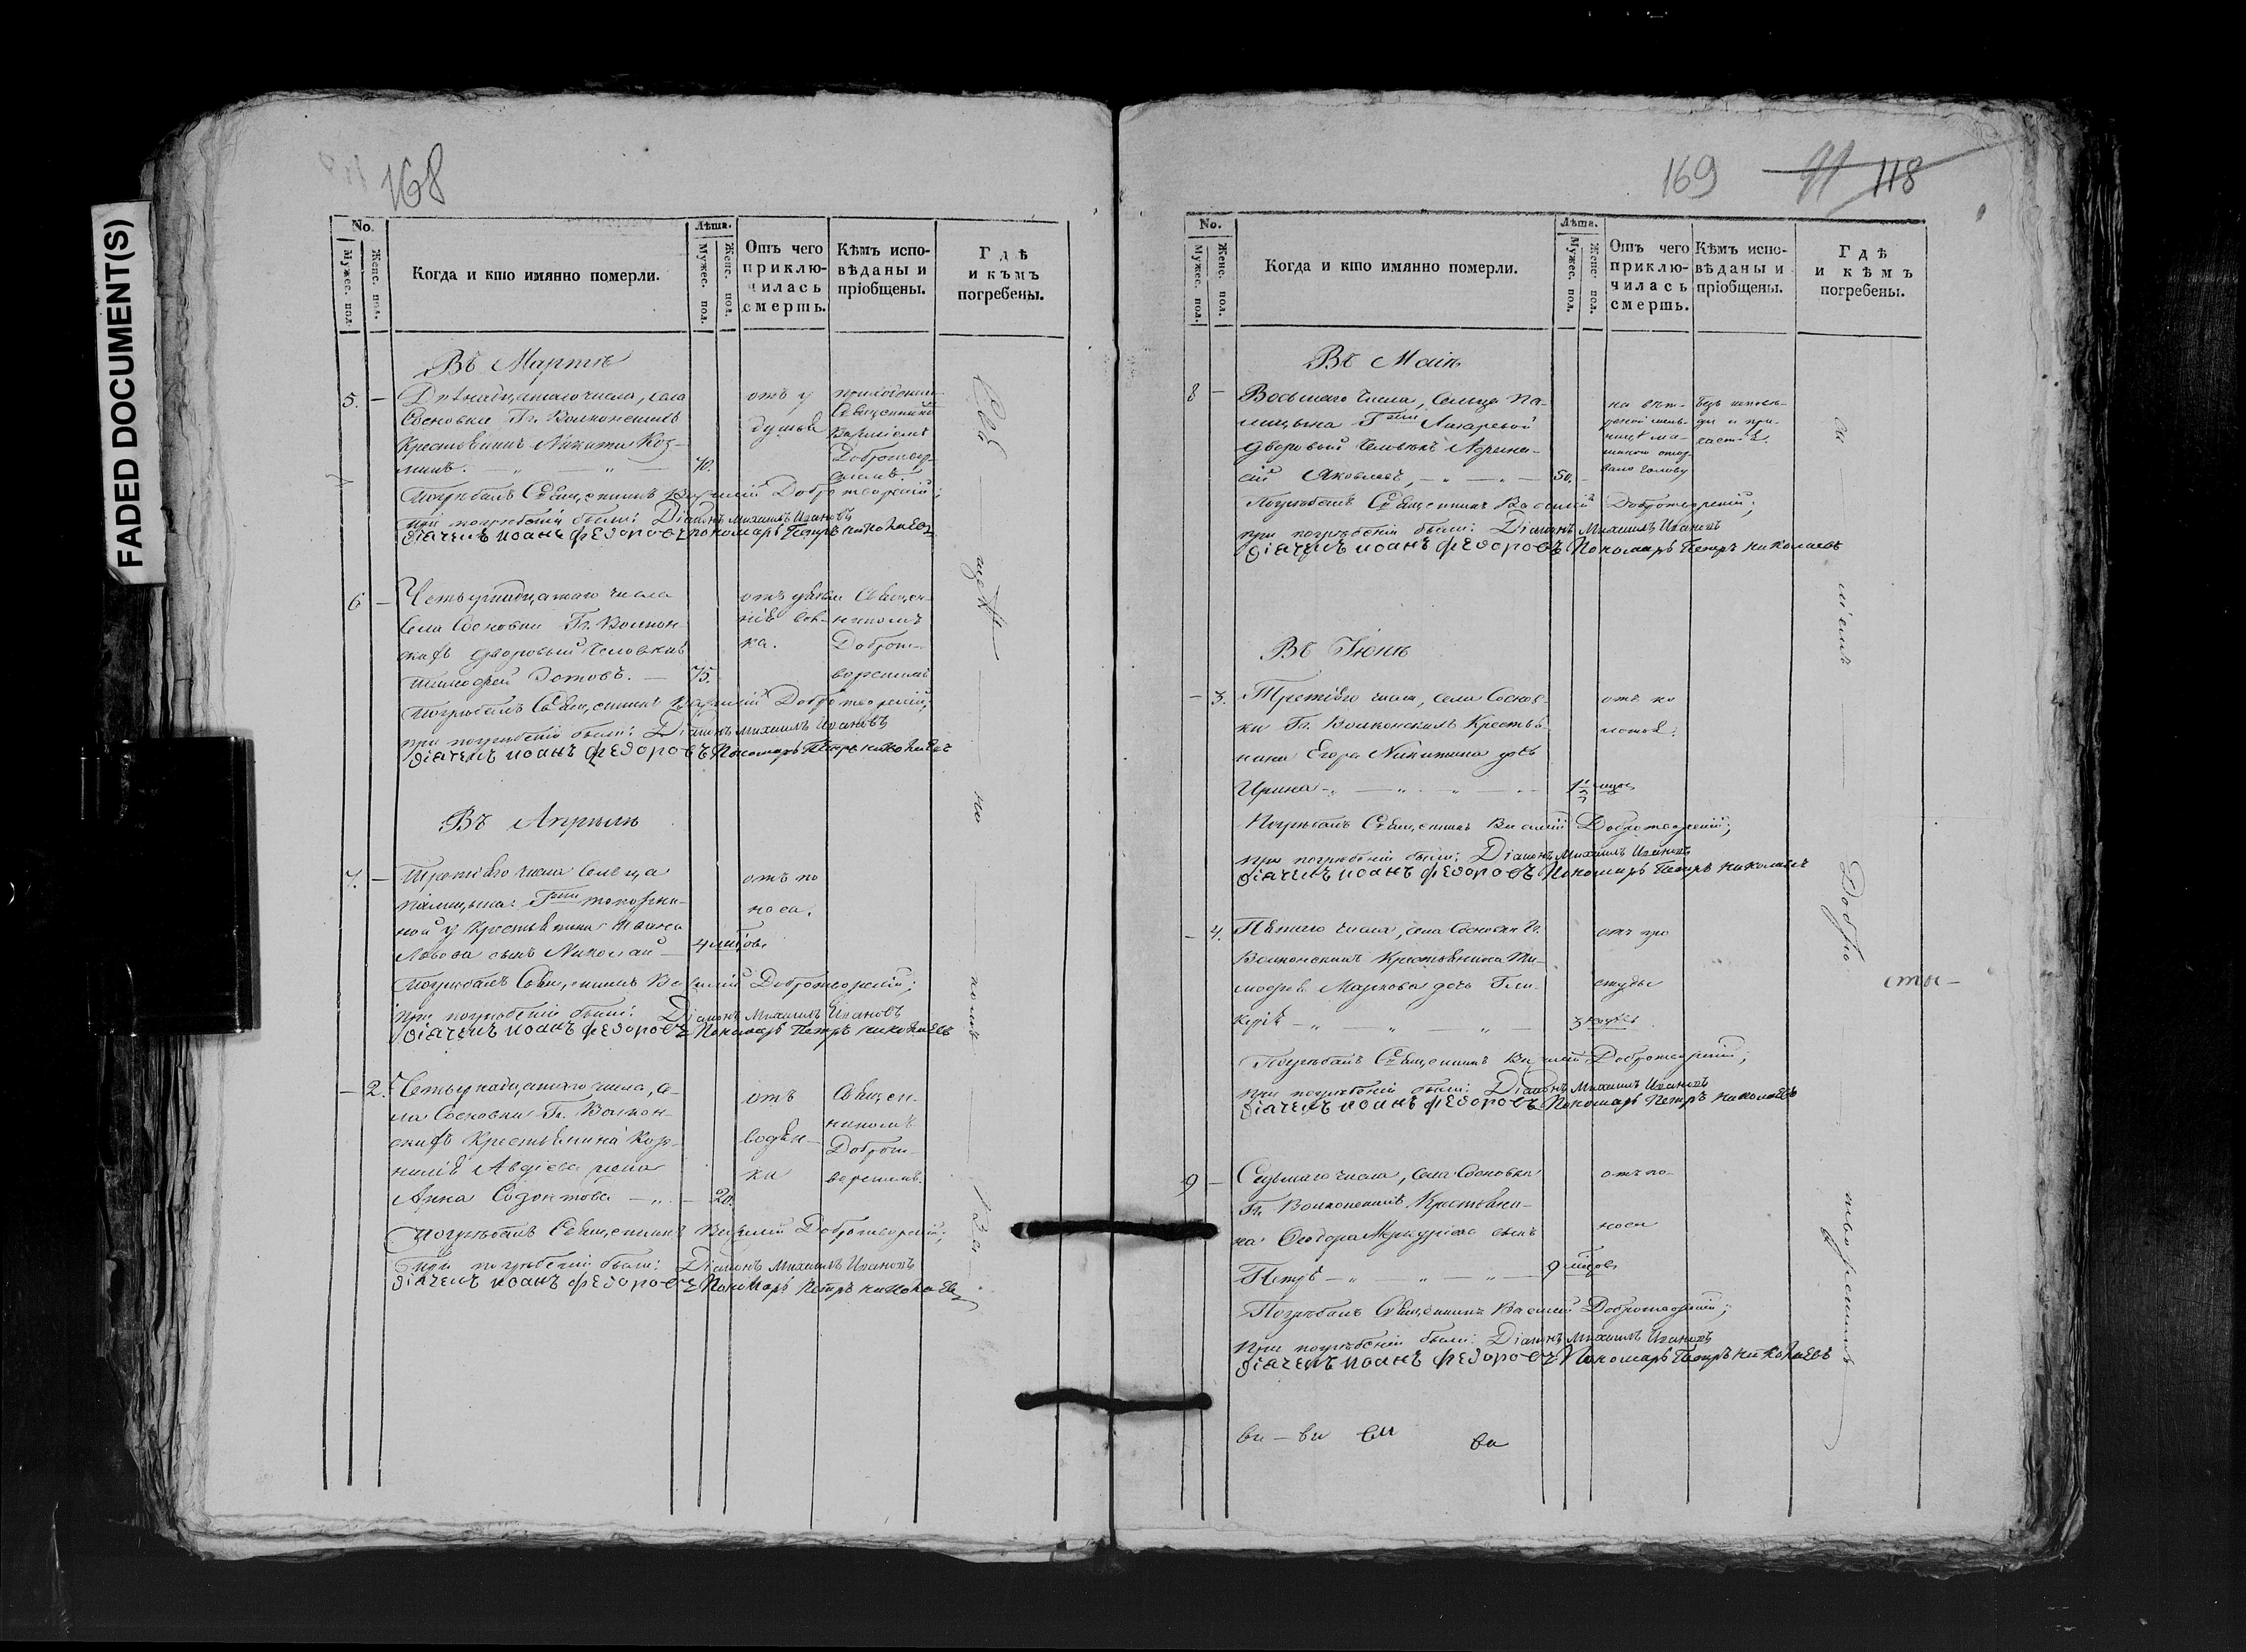 FADED DOCUMENT(S)
168
No.
Мужес. пол.
Женс. пол.
Когда и кто имянно померли.
Лѣта.
Мужес. пол.
Женс. пол.
Отъ чего приклю-
чилась смерть.
Кѣмъ испо-
вѣданы и
пріобщены.
Гдѣ
и кѣмъ
погребены.
Въ Мартѣ
5. — числа, села
Сосновки Гг. Волконскихъ
Крестьянинъ Никита Коз-
минъ. — " — 70.
отъ у
душья
Священникомъ
Василіемъ
Доброт
Погребалъ Священникъ Василій Добротворскій;
при погребеніи были: Діаконъ Михаилъ Ивановъ
діачекъ иоанъ федоровъ пономарь Петръ николаевъ
6 — Четырнадцатаго числа
Села Сосновки Гг. Волкон-
скихъ дворовый человѣкъ
Тимофей Зотовъ. — 75.
Священ-
никомъ
Доброт-
ворскимъ
Погребалъ Священникъ Василій Добротворскій;
при погребеніи были: Діаконъ михаилъ Ивановъ
діачекъ иоанъ федоровъ Пономарь Петръ николаевъ
Въ Апрѣлѣ
7. — Третьяго числа Сельца
у Крестьянина Ивана
Львова сынъ Николай —
4 мѣсяцовъ
отъ по
носа.
Погребалъ Священникъ Василій Добротворскій;
при погребеніи были: Діаконъ Михаилъ Ивановъ
діачекъ иоанъ федоровъ Пономарь Петръ николаевъ
— 2. Четырнадцатаго числа, се-
ла Сосновки Гг. Волкон-
скихъ Крестьянина Кор-
нилія Авдіева жена
Анна Созонтова — " — 20.
отъ
водян-
ки
Священ-
никомъ
Доброт-
ворскимъ.
Погребалъ Священникъ Василій Добротворскій;
при погребеніи были: Діаконъ Михаилъ Ивановъ
діачекъ иоанъ федоровъ Пономарь Петръ николаевъ
Свя — щен — ни — комъ — Ва
169 91 118
No.
Мужес. пол.
Женс. пол.
Когда и кто имянно померли.
Лѣта.
Мужес. пол.
Женс. пол.
Отъ чего приклю-
чилась смерть.
Кѣмъ испо-
вѣданы и
пріобщены.
Гдѣ
и кѣмъ
погребены.
Въ Маіѣ
8 — Восьмаго числа, Сельца Па-
Лихаревой
дворовый человѣкъ
Яковлевъ, — " — 50.
на вѣт-
голову
безъ испов-
Погребалъ Священникъ Василій Добротворскій;
при погребеніи были: Діаконъ Михаилъ Ивановъ
діачекъ иоанъ федоровъ Пономарь Петръ николаевъ
Въ Іюнѣ
— 3. Третьяго числа, села Соснов-
ки Гг. Волконскихъ Крестья-
нина Егора Никитина дочь
Ирина — " —
Погребалъ Священникъ Василій Добротворскій;
при погребеніи были: Діаконъ Михаилъ Ивановъ
діачекъ иоанъ федоровъ Пономарь Петръ николаевъ
— 4. Пятаго числа, села Сосновки Гг.
Волконскихъ Крестьянина Ти-
мофея Маркова дочь Гли-
керія — "
отъ про
студы
Погребалъ Священникъ Василій Добротворскій;
при погребеніи были: Діаконъ Михаилъ Ивановъ
діачекъ иоанъ федоровъ Пономарь Петръ николаевъ
9 — Седьмаго числа, Села Сосновки
Гг. Волконскихъ Крестьяни-
на Ѳеодора Меркуріева сынъ
Петръ — " — 9 мѣсяцовъ
отъ по-
носа
Погребалъ Священникъ Василій Добротворскій;
при погребеніи были: Діаконъ Михаилъ Ивановъ
діачекъ иоанъ федоровъ Пономарь Петръ николаевъ
си — ліемъ — Добро — творскимъ
ви — ви ви ви